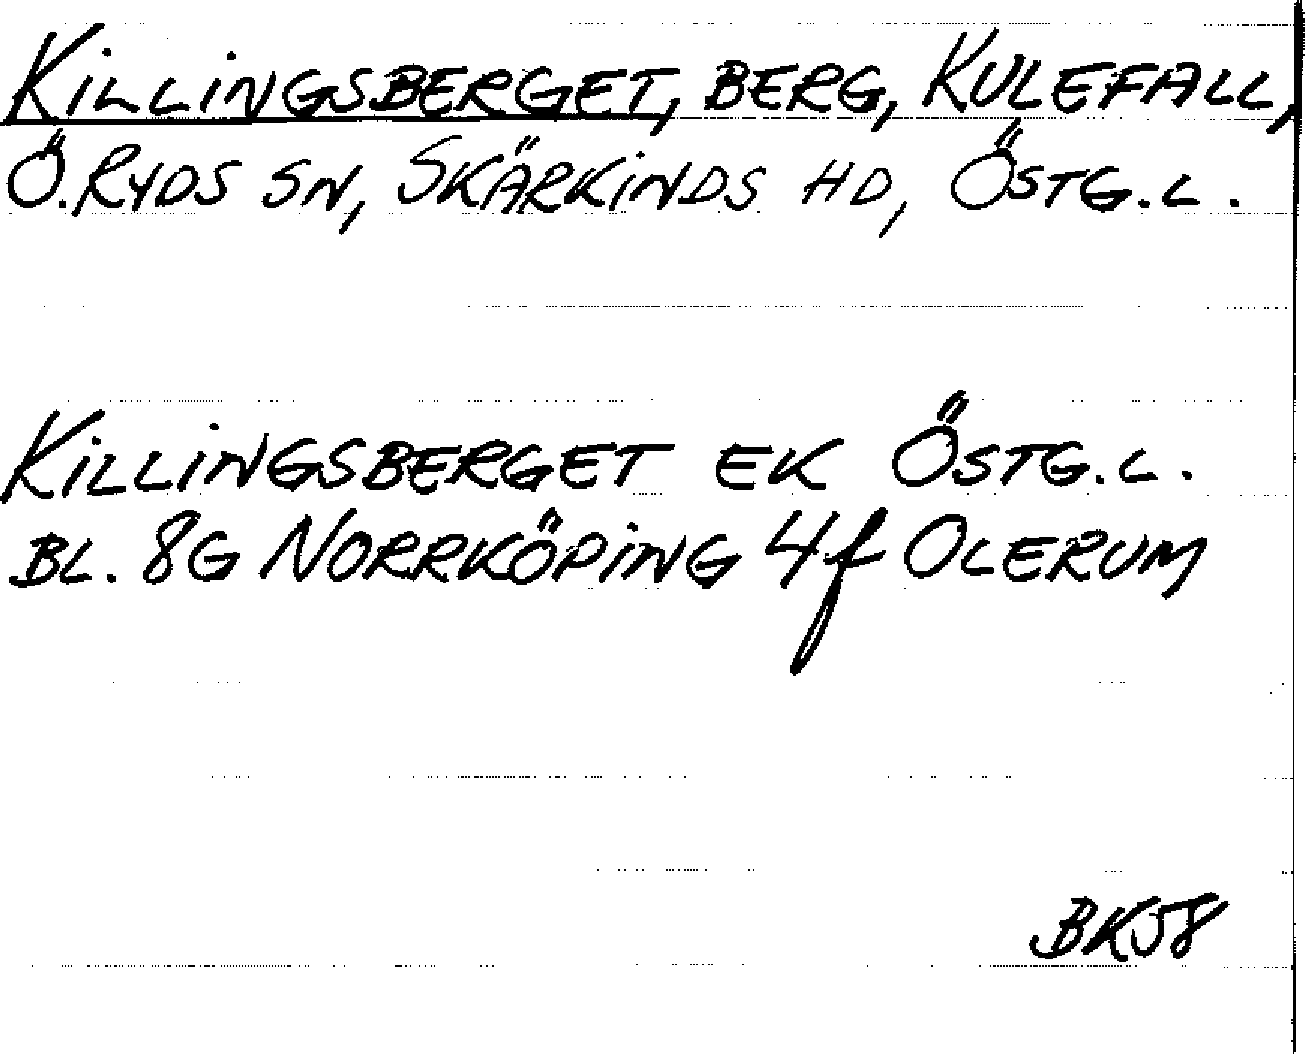 KILLINGSBERGET, BERG, KULEFALL,
Ö. RYDS SN, SKÄRKINDS HD, ÖSTG.L.
KILLINGSBERGET EK ÖSTG.L.
BL. 8G NORRKÖPING 4f OLERUM
BK58